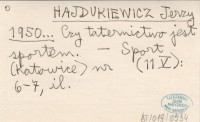 HAJDUKIEWICZ Jerzy
1950... Czy taternictwo jest
sportem. — Sport
(Katowice) nr (11 V):
6-7, il.